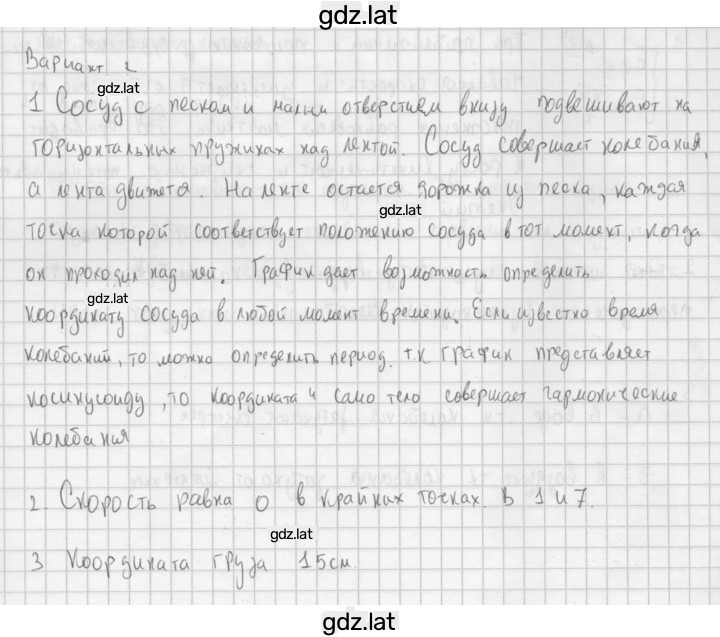 gdz.lat
Вариант 2
gdz.lat
1 Сосуд с песком и малым отверстием внизу подвешивают на
горизонтальных пружинах над лентой. Сосуд совершает колебания,
а лента движется. На ленте остается дорожка из песка, каждая
gdz.lat
точка которой соответствует положению сосуда в тот момент, когда
он проходил над ней. График дает возможность определить
gdz.lat
координату сосуда в любой момент времени. Если известно время
колебаний, то можно определить период. т.к график представляет
косинусоиду, то координата и само тело совершает гармонические
колебания
2. Скорость равна 0 в крайних точках. В 1 и 7.
gdz.lat
3 Координата груза 15см.
gdz.lat